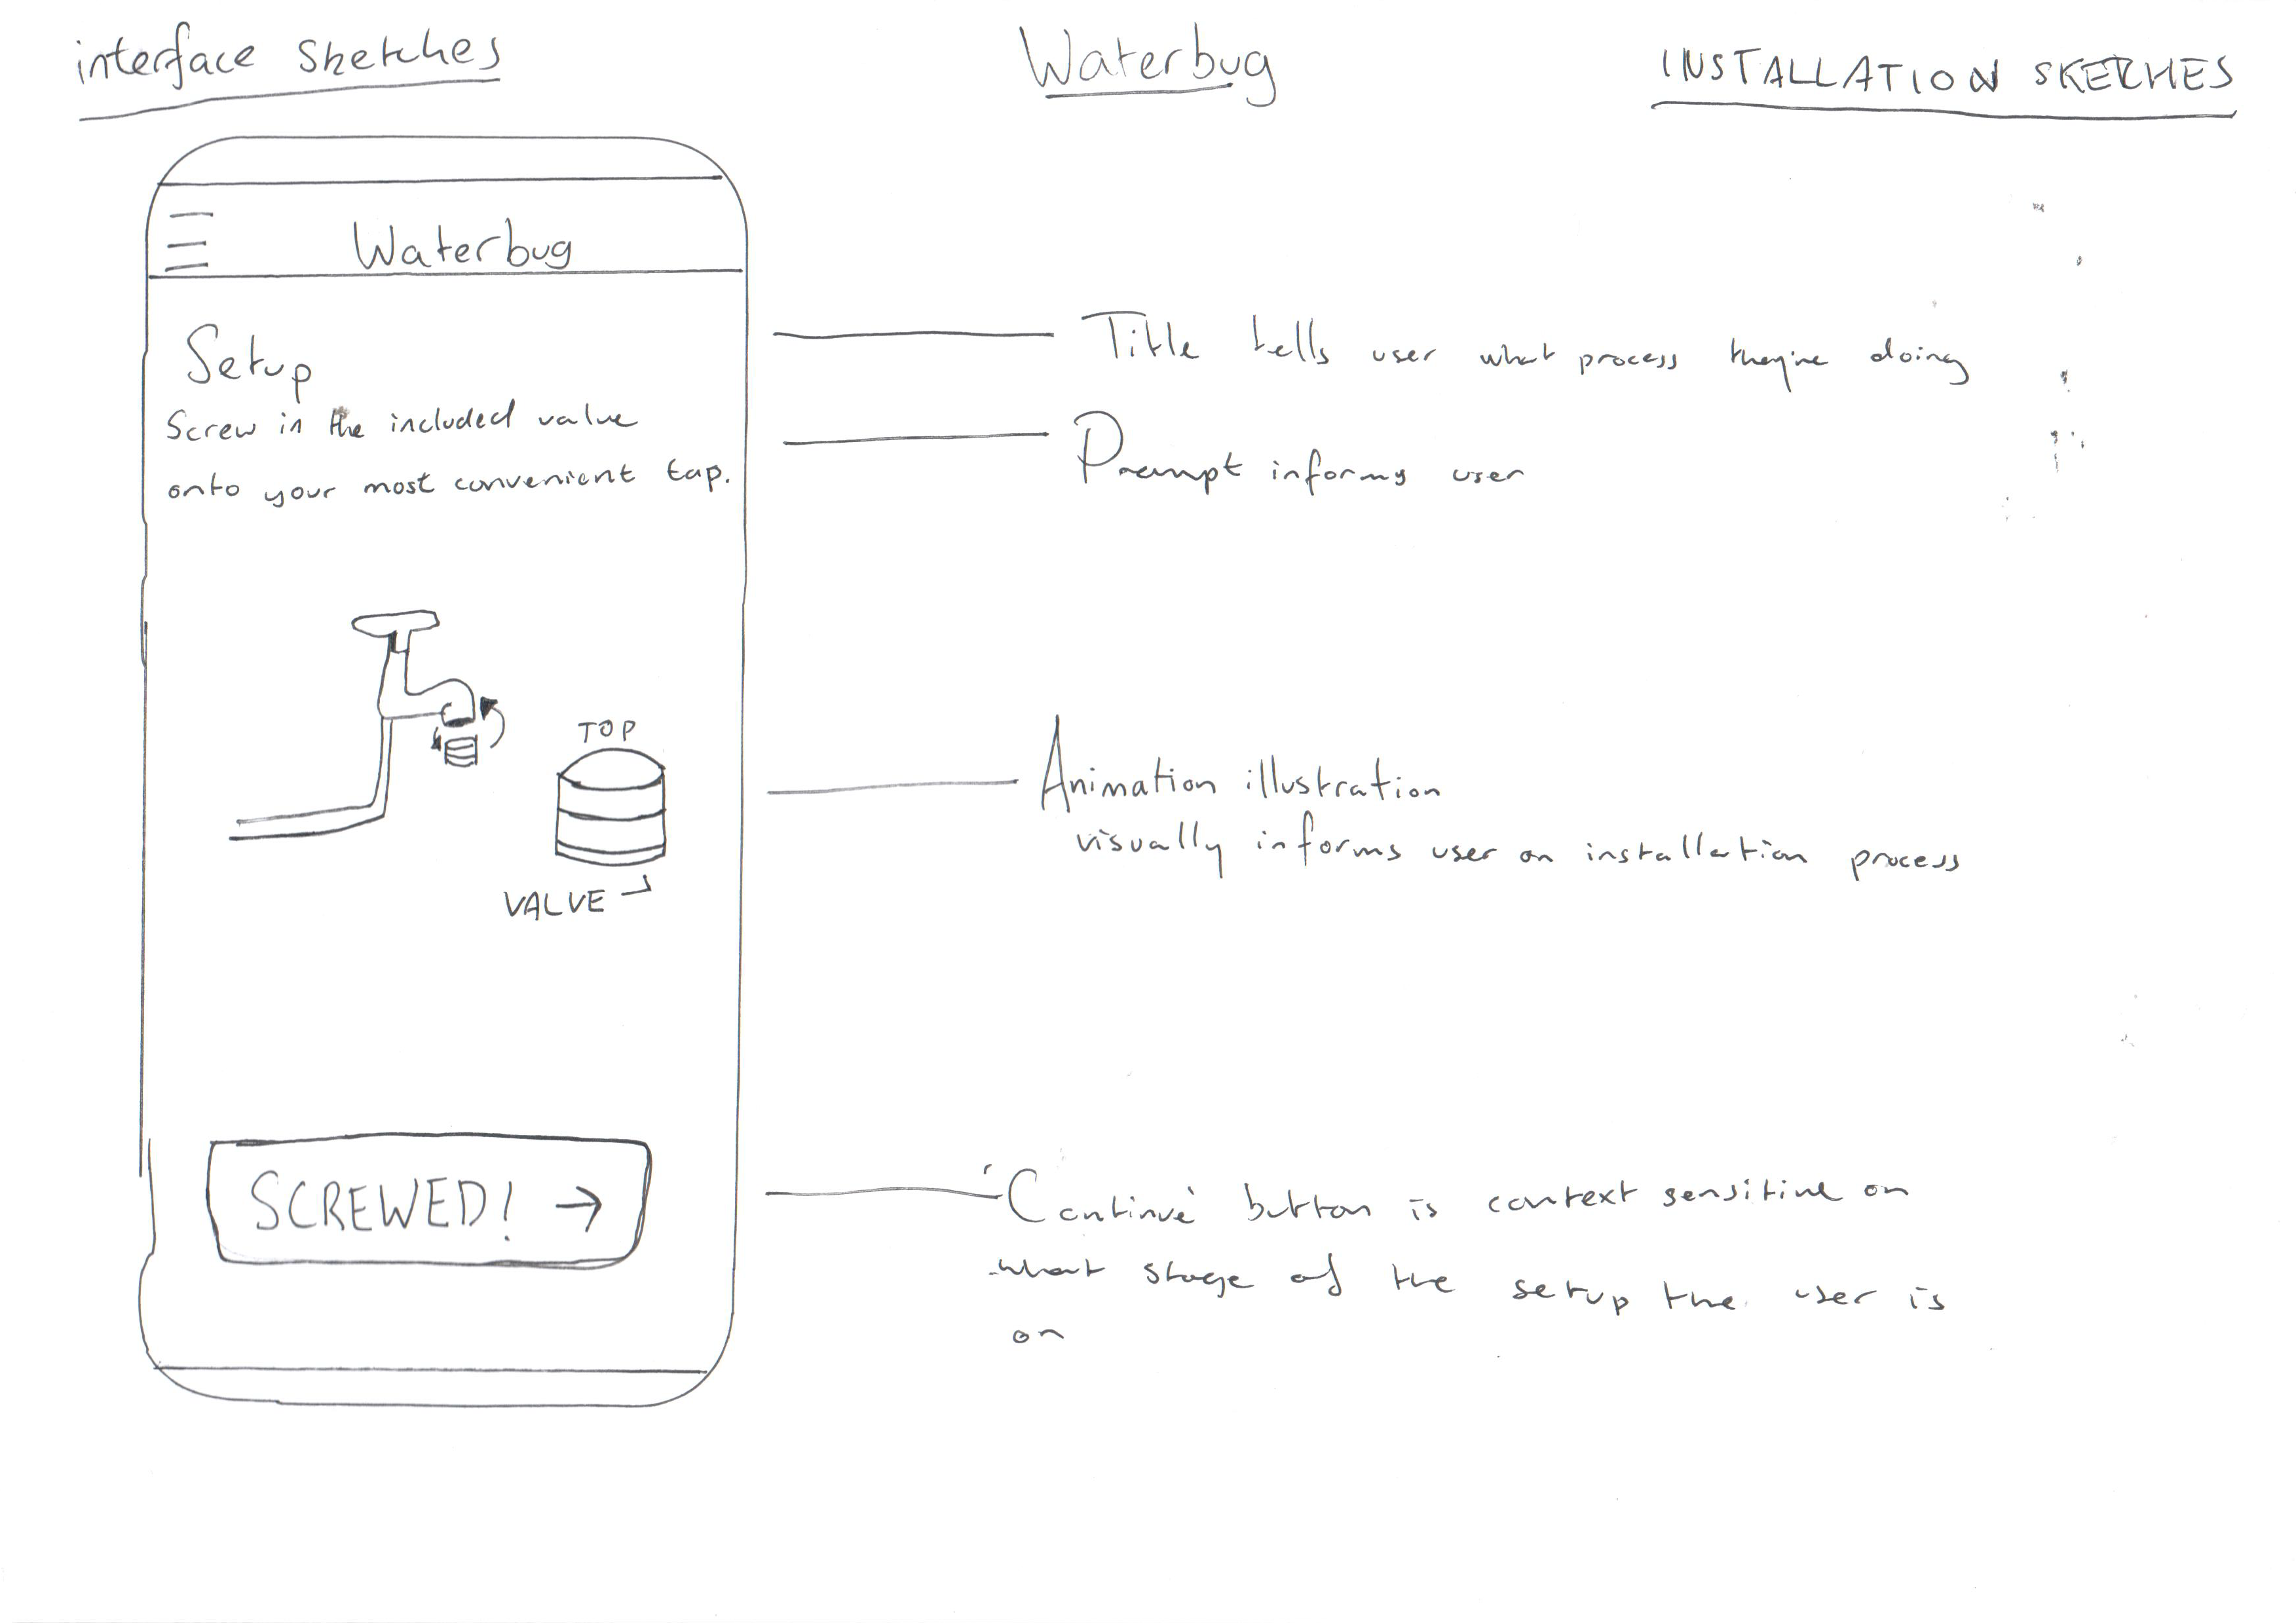 interface Sketches
Waterbug
INSTALLATION SKETCHES
Waterbug
Setup
Screw in the included value
onto your most convenient tap.
TOP
VALVE
SCREWED! →
Title tells user what process they're doing
Prompt informs user
Animation illustration
visually informs user on installation process
'Continue' button is context sensitive on
what stage of the setup the user is
on